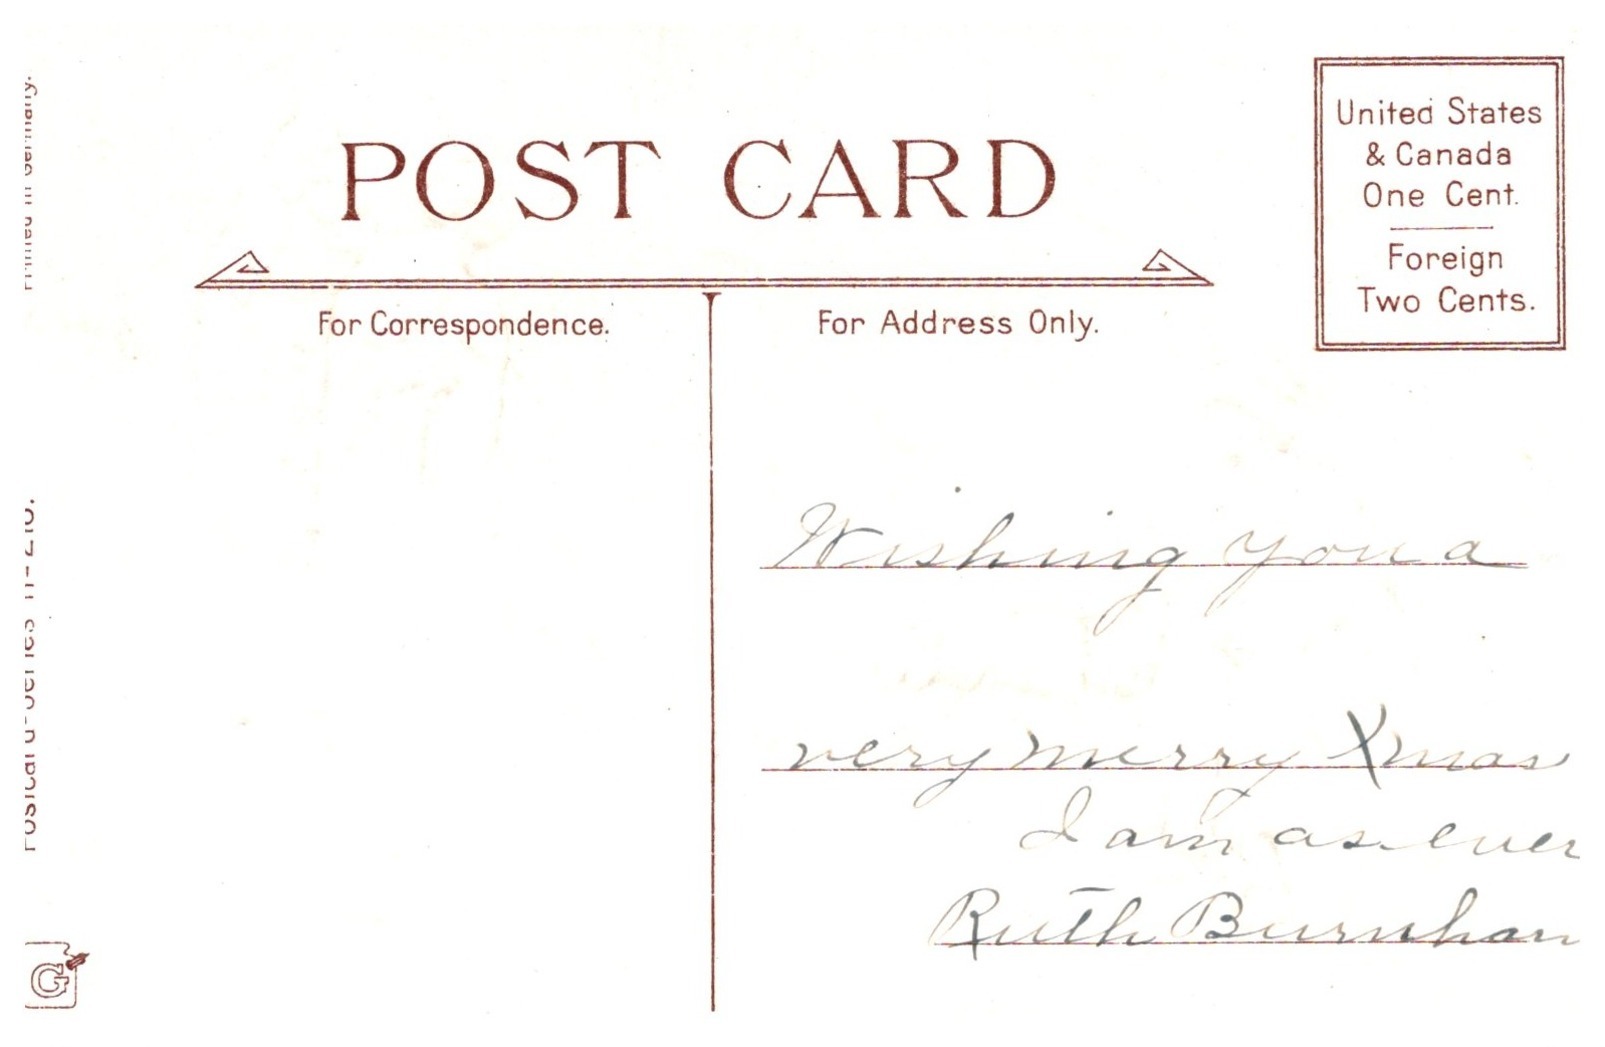 Printed in Germany.
POST CARD
United States
& Canada
One Cent.
Foreign
Two Cents.
For Correspondence.
For Address Only.
Wishing you a
very merry Xmas
I am as ever
Ruth Burnham
Postcard Series
G